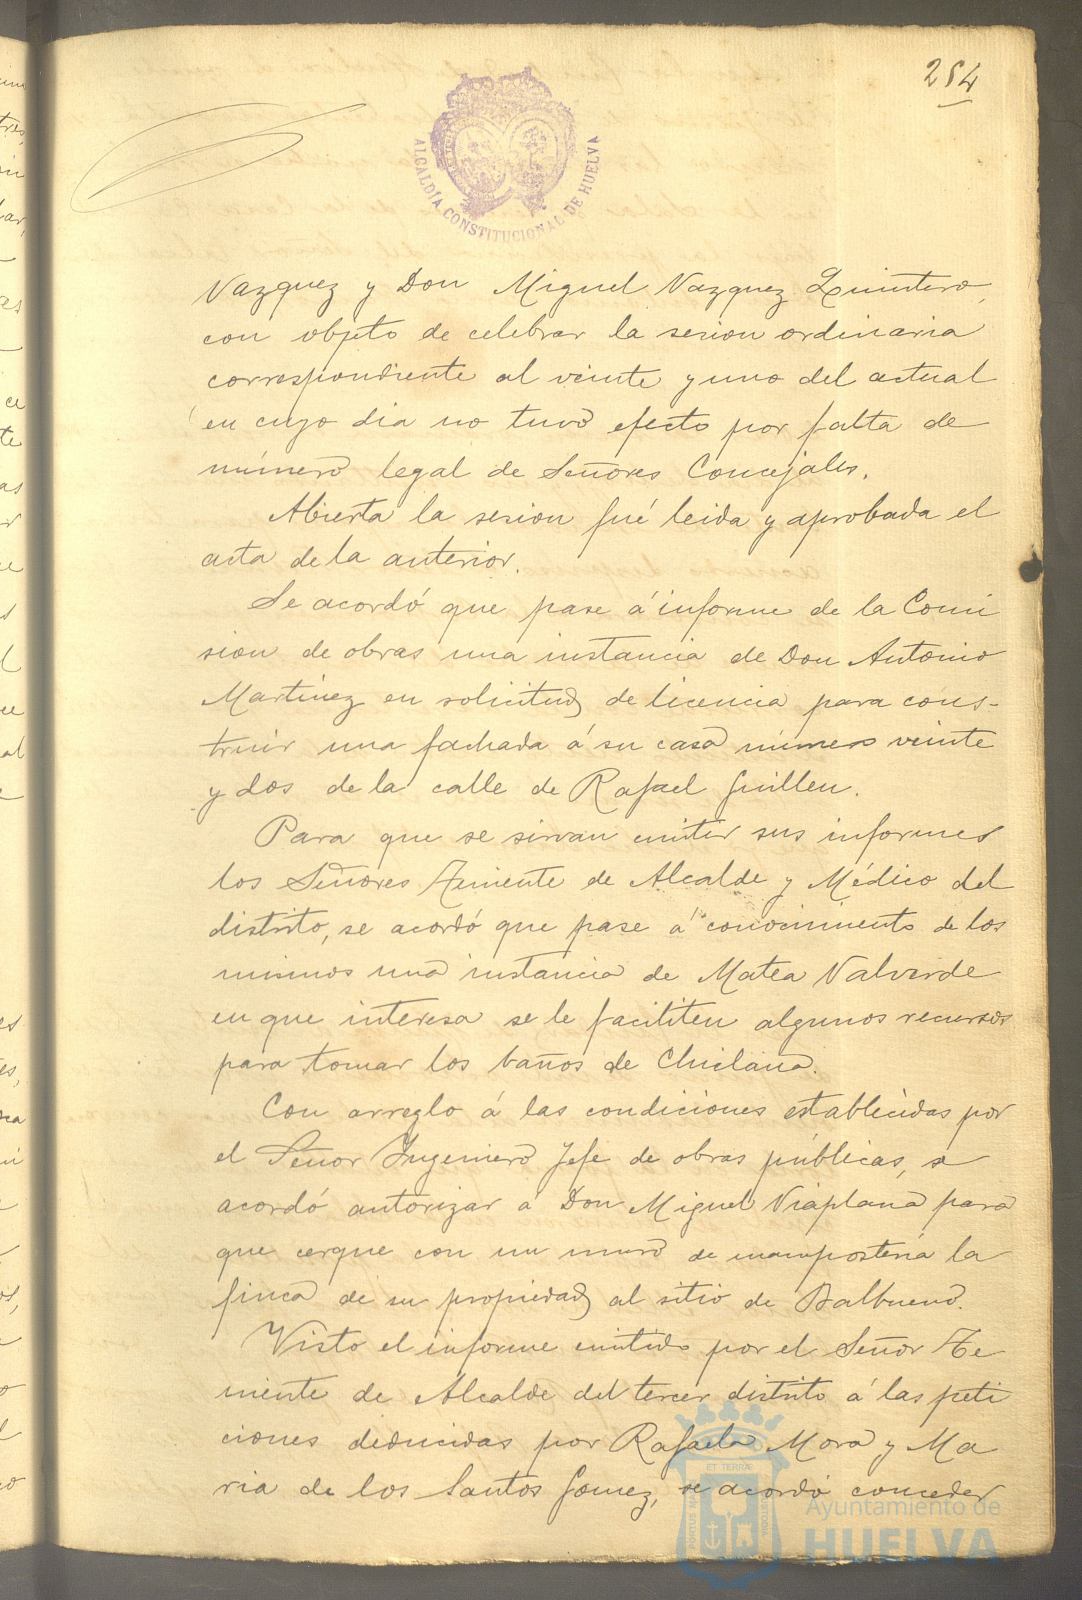 254
ALCALDÍA CONSTITUCIONAL DE HUELVA
Vazquez y Don Miguel Vazquez Quintero,
con objeto de celebrar la sesion ordinaria
correspondiente al veinte y uno del actual
en cuyo dia no tuvo efecto por falta de
número legal de Señores Concejales.
Abierta la sesion fué leida y aprobada el
acta de la anterior.
Se acordó que pase á informe de la Comi
sion de obras una instancia de Don Antonio
Martinez en solicitud de licencia para cons-
truir una fachada á su casa número veinte
y dos de la calle de Rafael Guillen.
Para que se sirvan emitir sus informes
los Señores Teniente de Alcalde y Médico del
distrito, se acordó que pase á conocimiento de los
mismos una instancia de Matea Valverde
en que interesa se le faciliten algunos recursos
para tomar los baños de Chiclana.
Con arreglo á las condiciones establecidas por
el Señor Ingeniero Jefe de obras públicas, se
acordó autorizar a Don Miguel Viaplana para
que cerque con un muro de mampostería la
finca de su propiedad al sitio de Balbueno.
Visto el informe emitido por el Señor Te
niente de Alcalde del tercer distrito á las peti
ciones deducidas por Rafaela Mora y Ma
ria de los Santos Gomez, se acordó conceder
ET TERRÆ
Ayuntamiento de
HUELVA